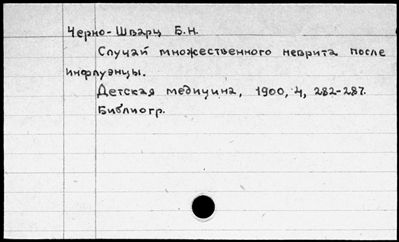 Черно-Шварц Б.Н.
Случай множественного неврита после
инфлуэнцы.
Детская медицина, 1900, 4, 282-287.
Библиогр.